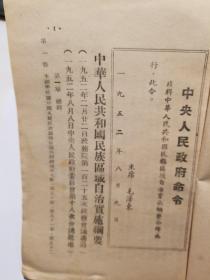 中央人民政府命令
批准中華人民共和國民族區域自治實施綱要公佈施
行,此令。
主席 毛澤東
一九五二年八月九日
中華人民共和國民族區域自治實施綱要
(一九五二年二月二十二日政務院第一百二十五次政務會議通過
一九五二年八月八日中央人民政府委員會第十八次會議批准)
第一章 總則
第一條